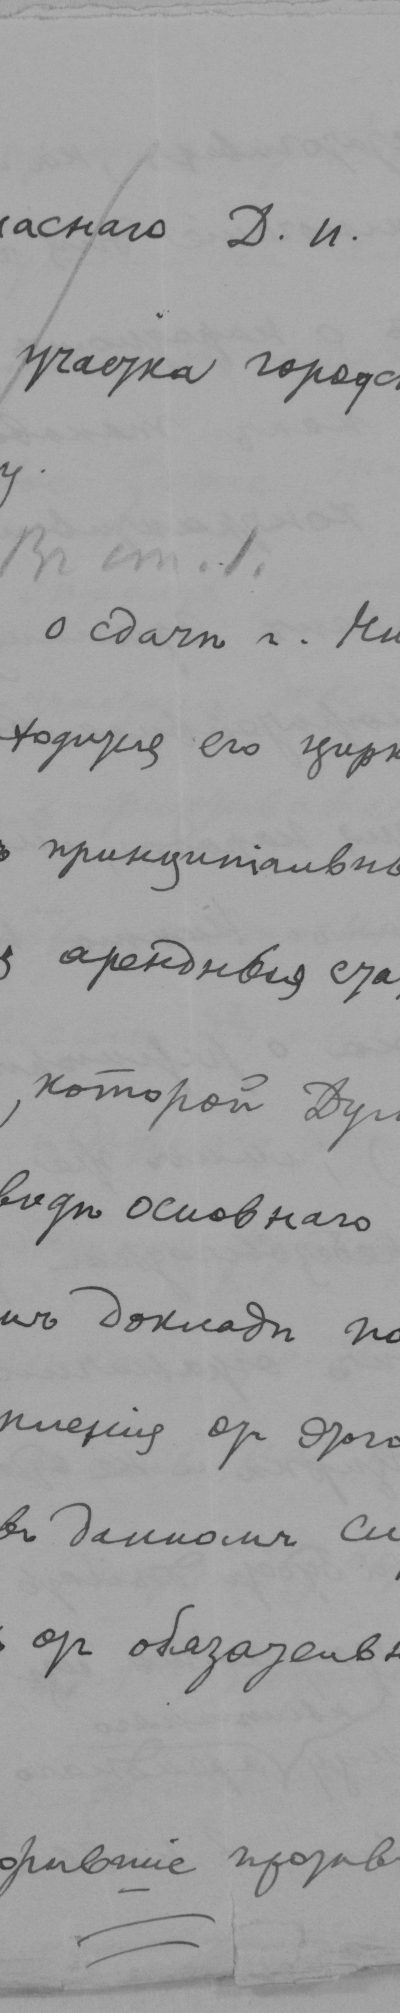 гласнаго Д. И.
участка городск
у.
Въ ст. 1.
о сдачѣ г. Ни
ходится его цирк
ъ принципіальнь
з арендныя ста
, которой Дум
виду основнаго
имъ докладѣ по
пленія отъ этого
въ данномъ слу
ъ отъ обязательн
орившіе противъ